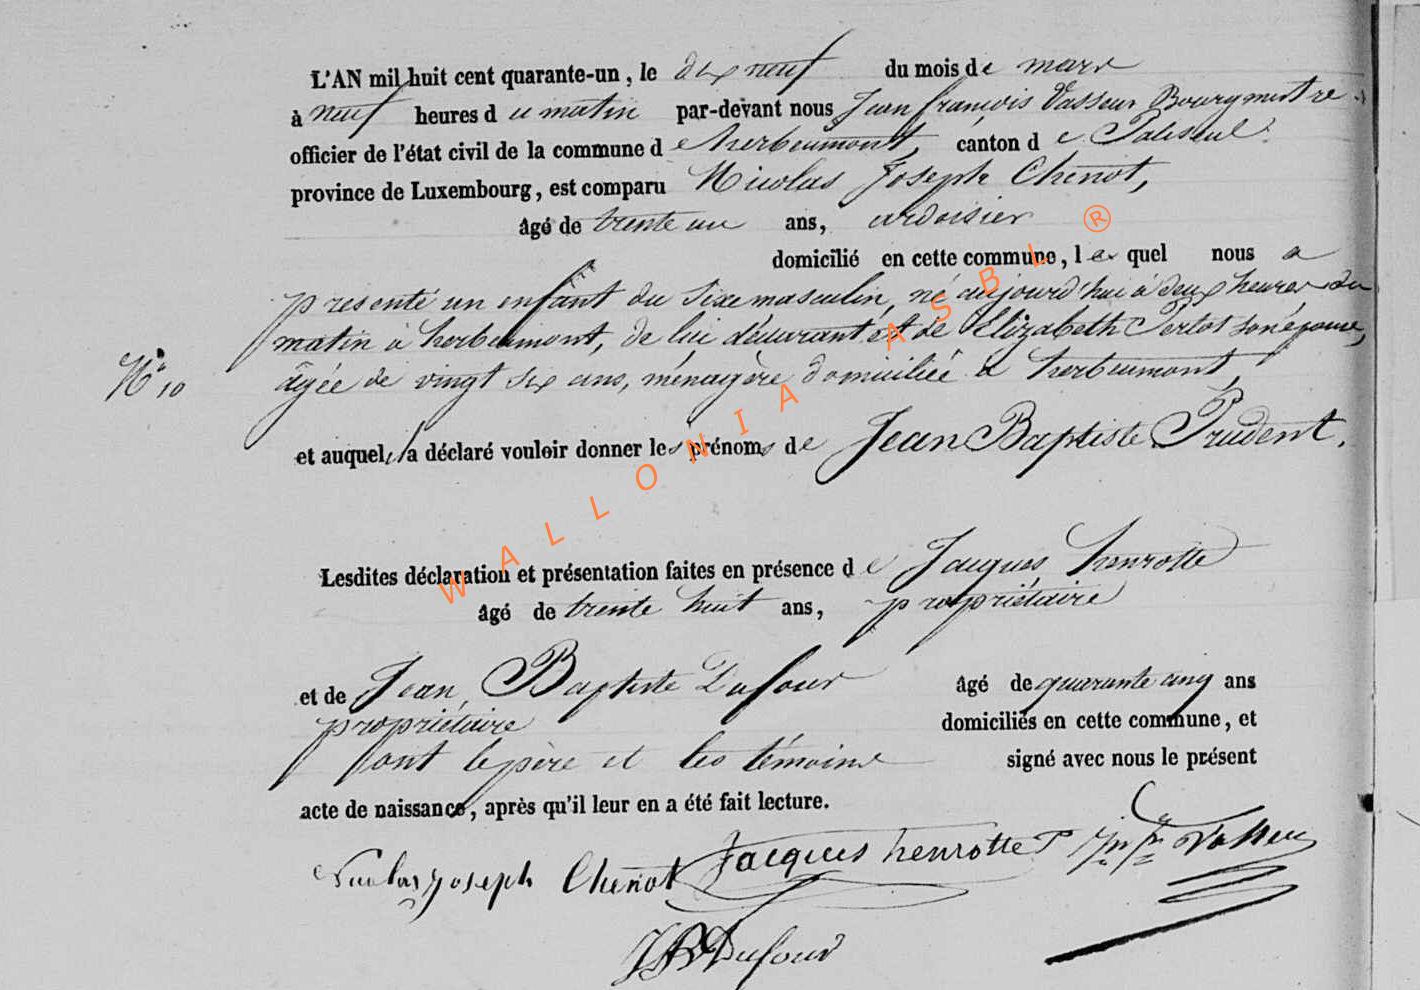 L'AN mil huit cent quarante-un, le dix neuf du mois de mars
à neuf heures du matin par-devant nous Jean françois Vasseur Bourgmestre
officier de l'état civil de la commune de herbeumont, canton de Paliseul
province de Luxembourg, est comparu Nicolas Joseph Chenot,
âgé de trente un ans, ardoisier
domicilié en cette commune, lequel nous a
présenté un enfant du sixe masculin, né aujourd'hui à deux heures du
matin à herbeumont, de lui déclarant et de Elizabeth Pertot son épouse,
N° 10
âgée de vingt six ans, ménagère domiciliée à herbeumont,
et auquel il a déclaré vouloir donner les prénoms de Jean Baptiste Prudent.
Lesdites déclaration et présentation faites en présence de Jacques henrotte
âgé de trente huit ans, propriétaire
et de Jean Baptiste Dufour âgé de quarante cinq ans
propriétaire domiciliés en cette commune, et
ont le père et les témoins signé avec nous le présent
acte de naissance, après qu'il leur en a été fait lecture.
Nicolas joseph Chenot Jacques henrotte Vasseur
JB Dufour
WALLONIA ASBL ®